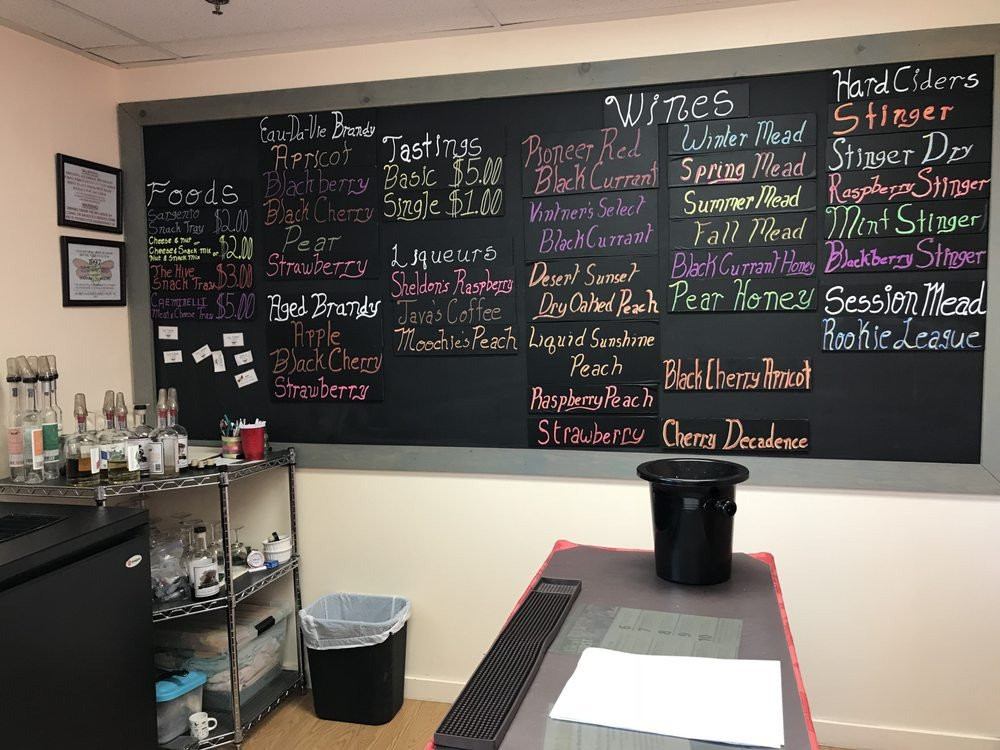 Foods
Sargento
Snack Tray $2.00
Cheese & Nut or
Cheese & Snack Mix or $2.00
Nut & Snack Mix
The Hive
Snack Tray $3.00
$5.00
Meat & Cheese Tray
Eau-Da-Vie Brandy
Apricot
Blackberry
Black Cherry
Pear
Strawberry
Aged Brandy
Apple
Black Cherry
Strawberry
Tastings
Basic $5.00
Single $1.00
Liqueurs
Sheldon's Raspberry
Java's Coffee
Moochie's Peach
Wines
Pioneer Red
Black Currant
Vintner's Select
Black Currant
Desert Sunset
Dry Oaked Peach
Liquid Sunshine
Peach
Raspberry Peach
Strawberry
Winter Mead
Spring Mead
Summer Mead
Fall Mead
Black Currant Honey
Pear Honey
Black Cherry Apricot
Cherry Decadence
Hard Ciders
Stinger
Stinger Dry
Raspberry Stinger
Mint Stinger
Blackberry Stinger
Session Mead
Rookie League